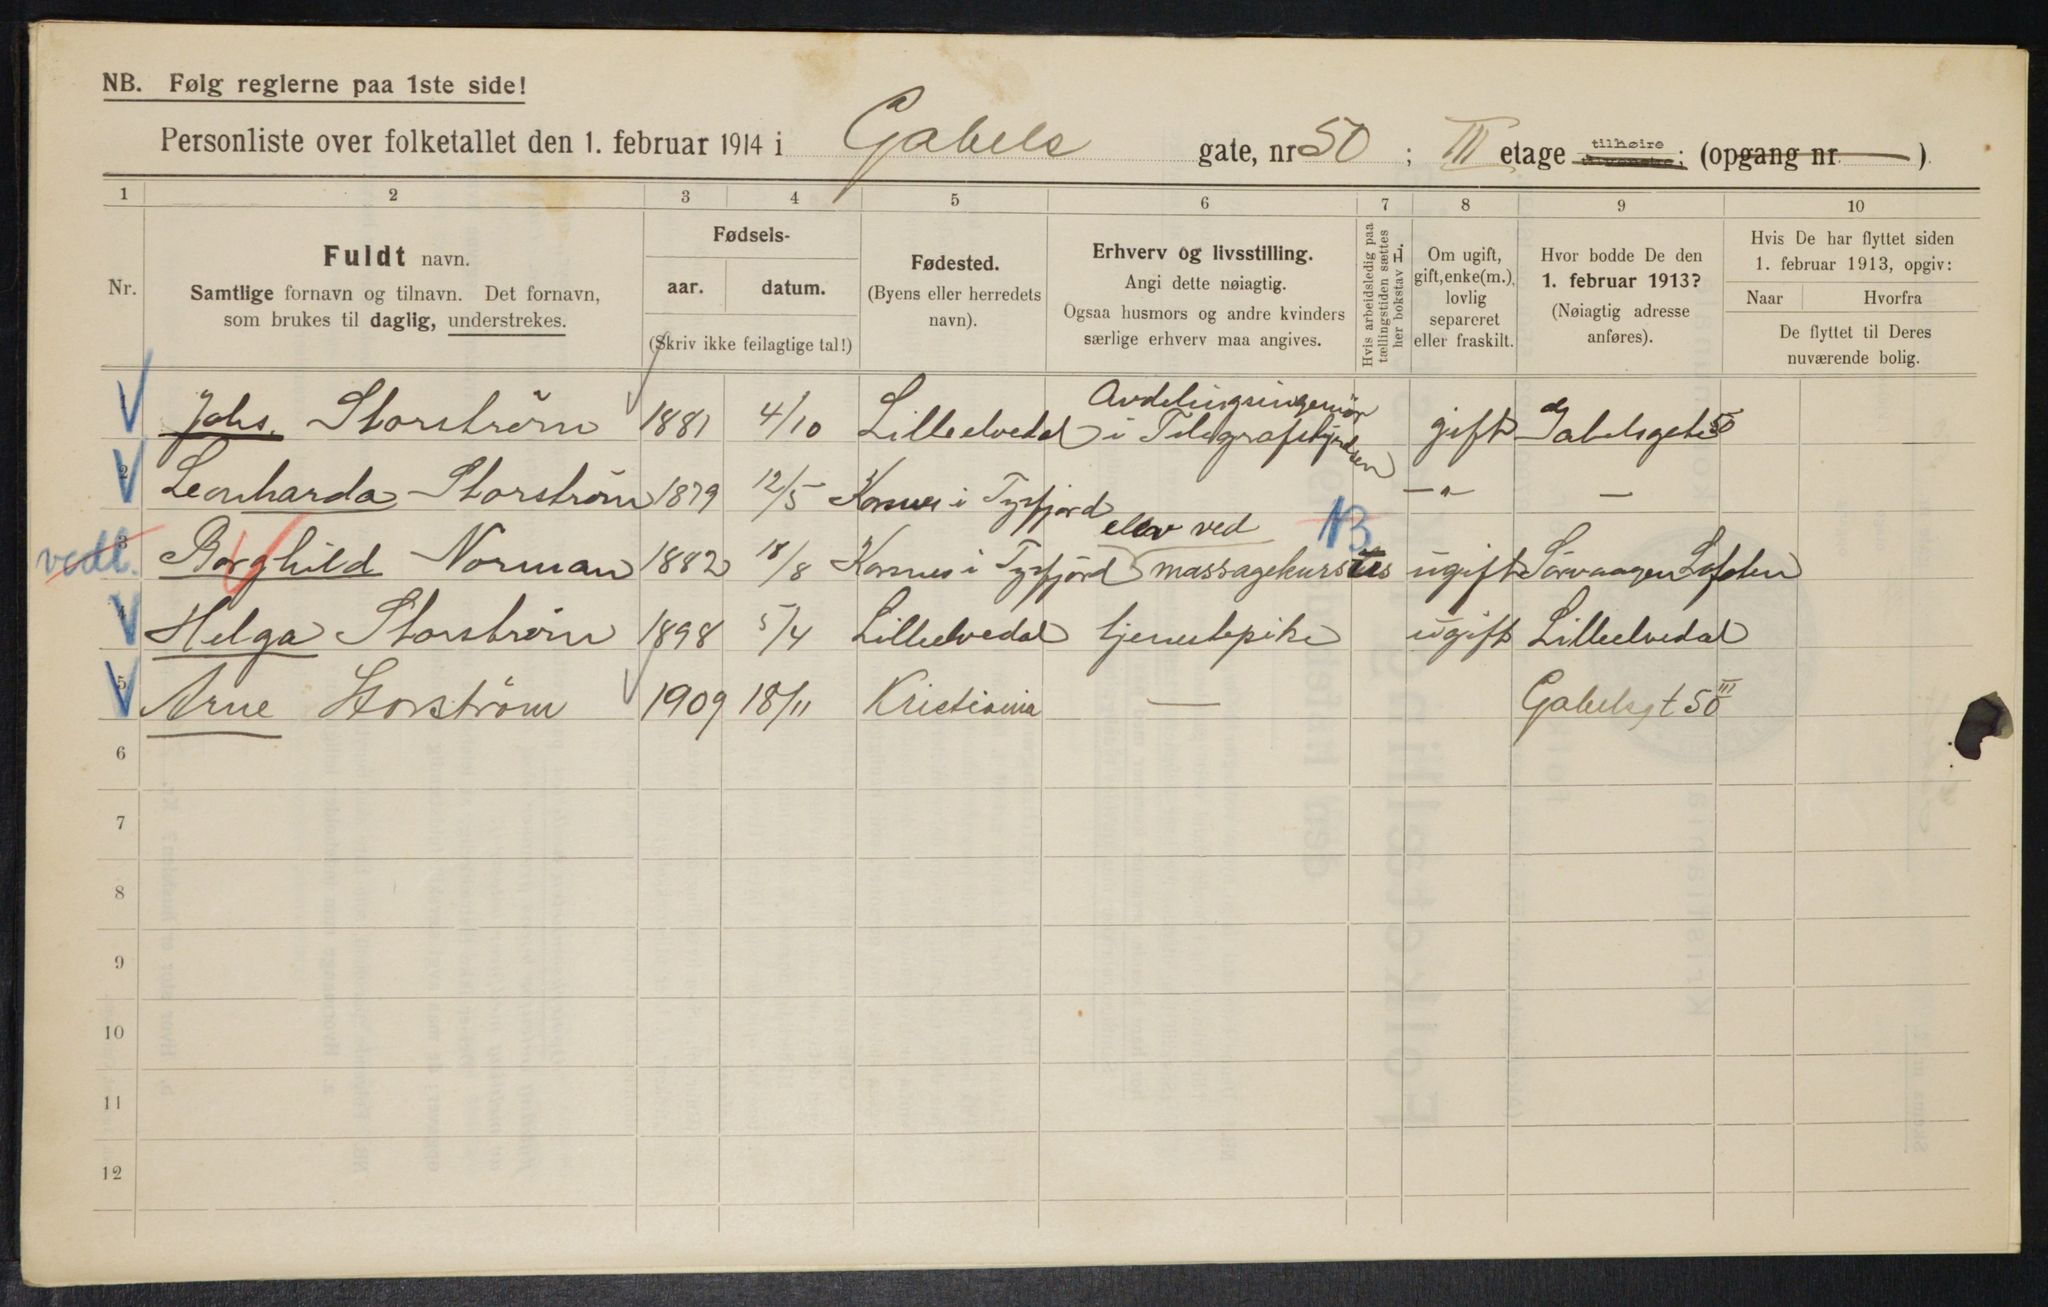 NB. Følg reglerne paa 1ste side!
Personliste over folketallet den 1. februar 1914 i Gabels gate, nr 50 ; III etage tilhøire ; (opgang nr )
1 2 3 4 5 6 7 8 9 10
Nr.
Fuldt navn.
Samtlige fornavn og tilnavn. Det fornavn,
som brukes til daglig, understrekes.
Fødsels-
aar. datum.
(Skriv ikke feilagtige tal!)
Fødested.
(Byens eller herredets
navn).
Erhverv og livsstilling.
Angi dette nøiagtig.
Ogsaa husmors og andre kvinders
særlige erhverv maa angives.
Hvis arbeidsledig paa
tællingstiden sættes
her bokstav L.
Om ugift,
gift, enke(m.),
lovlig
separeret
eller fraskilt.
Hvor bodde De den
1. februar 1913?
(Nøiagtig adresse
anføres).
Hvis De har flyttet siden
1. februar 1913, opgiv:
Naar Hvorfra
De flyttet til Deres
nuværende bolig.
Johs. Storstrøm 1881 4/10 Lilleelvedal Avdelingsingeniør i Telegrafstyrelsen gift Gabelsgate 50
2 Leonharda Storstrøm 1879 12/5 Korsnes i Tysfjord —"— —
vedl. 3 Borghild Norman 1882 18/8 Korsnes i Tysfjord elev ved massagekursus NB ugift Sørvaagen Lofoten
4 Helga Storstrøm 1898 5/4 Lilleelvedal tjenestepike ugift Lilleelvedal
5 Arne Storstrøm 1909 18/11 Kristiania — Gabelsgt 50 III
6
7
8
9
10
11
12